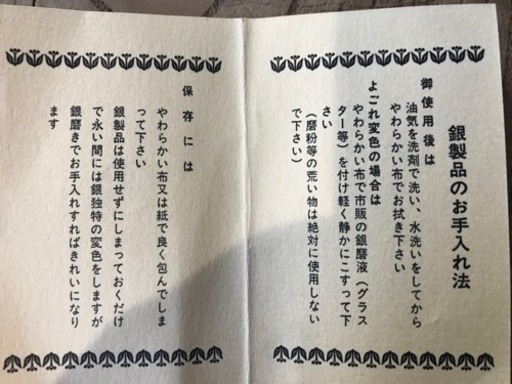 銀製品のお手入れ法
御使用後は
油気を洗剤で洗い、水洗いをしてから
やわらかい布でお拭き下さい
よごれ変色の場合は
やわらかい布で市販の銀磨液（グラス
ター等）を付け軽く静かにこすって下
さい
（磨粉等の荒い物は絶対に使用しない
で下さい）
保存には
やわらかい布又は紙で良く包んでしま
って下さい
銀製品は使用せずにしまっておくだけ
で永い間には銀独特の変色をしますが
銀磨きでお手入れすればきれいになり
ます